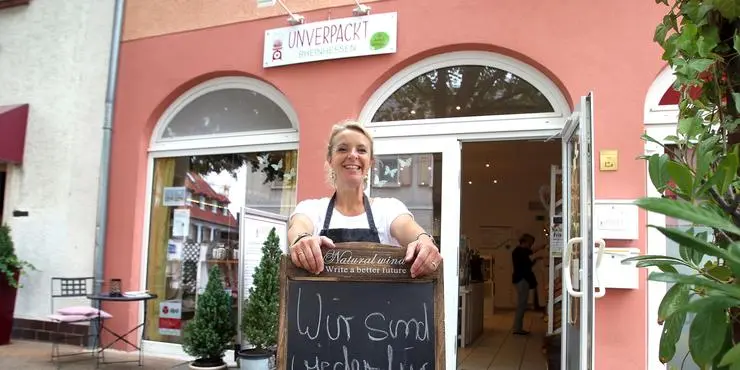 UNVERPACKT
RHEINHESSEN
Natural wind
Write a better future
Wir sind
wieder für